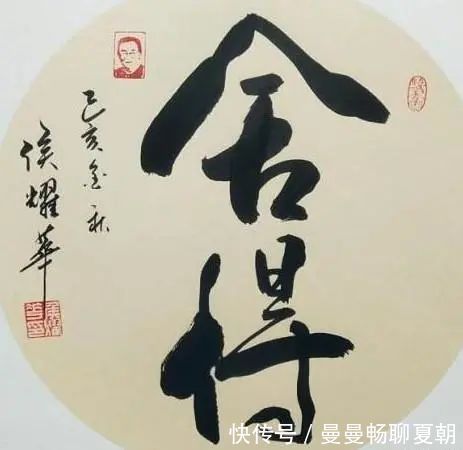 舍得
己亥金秋
侯耀華
快传号 / 曼曼畅聊夏朝